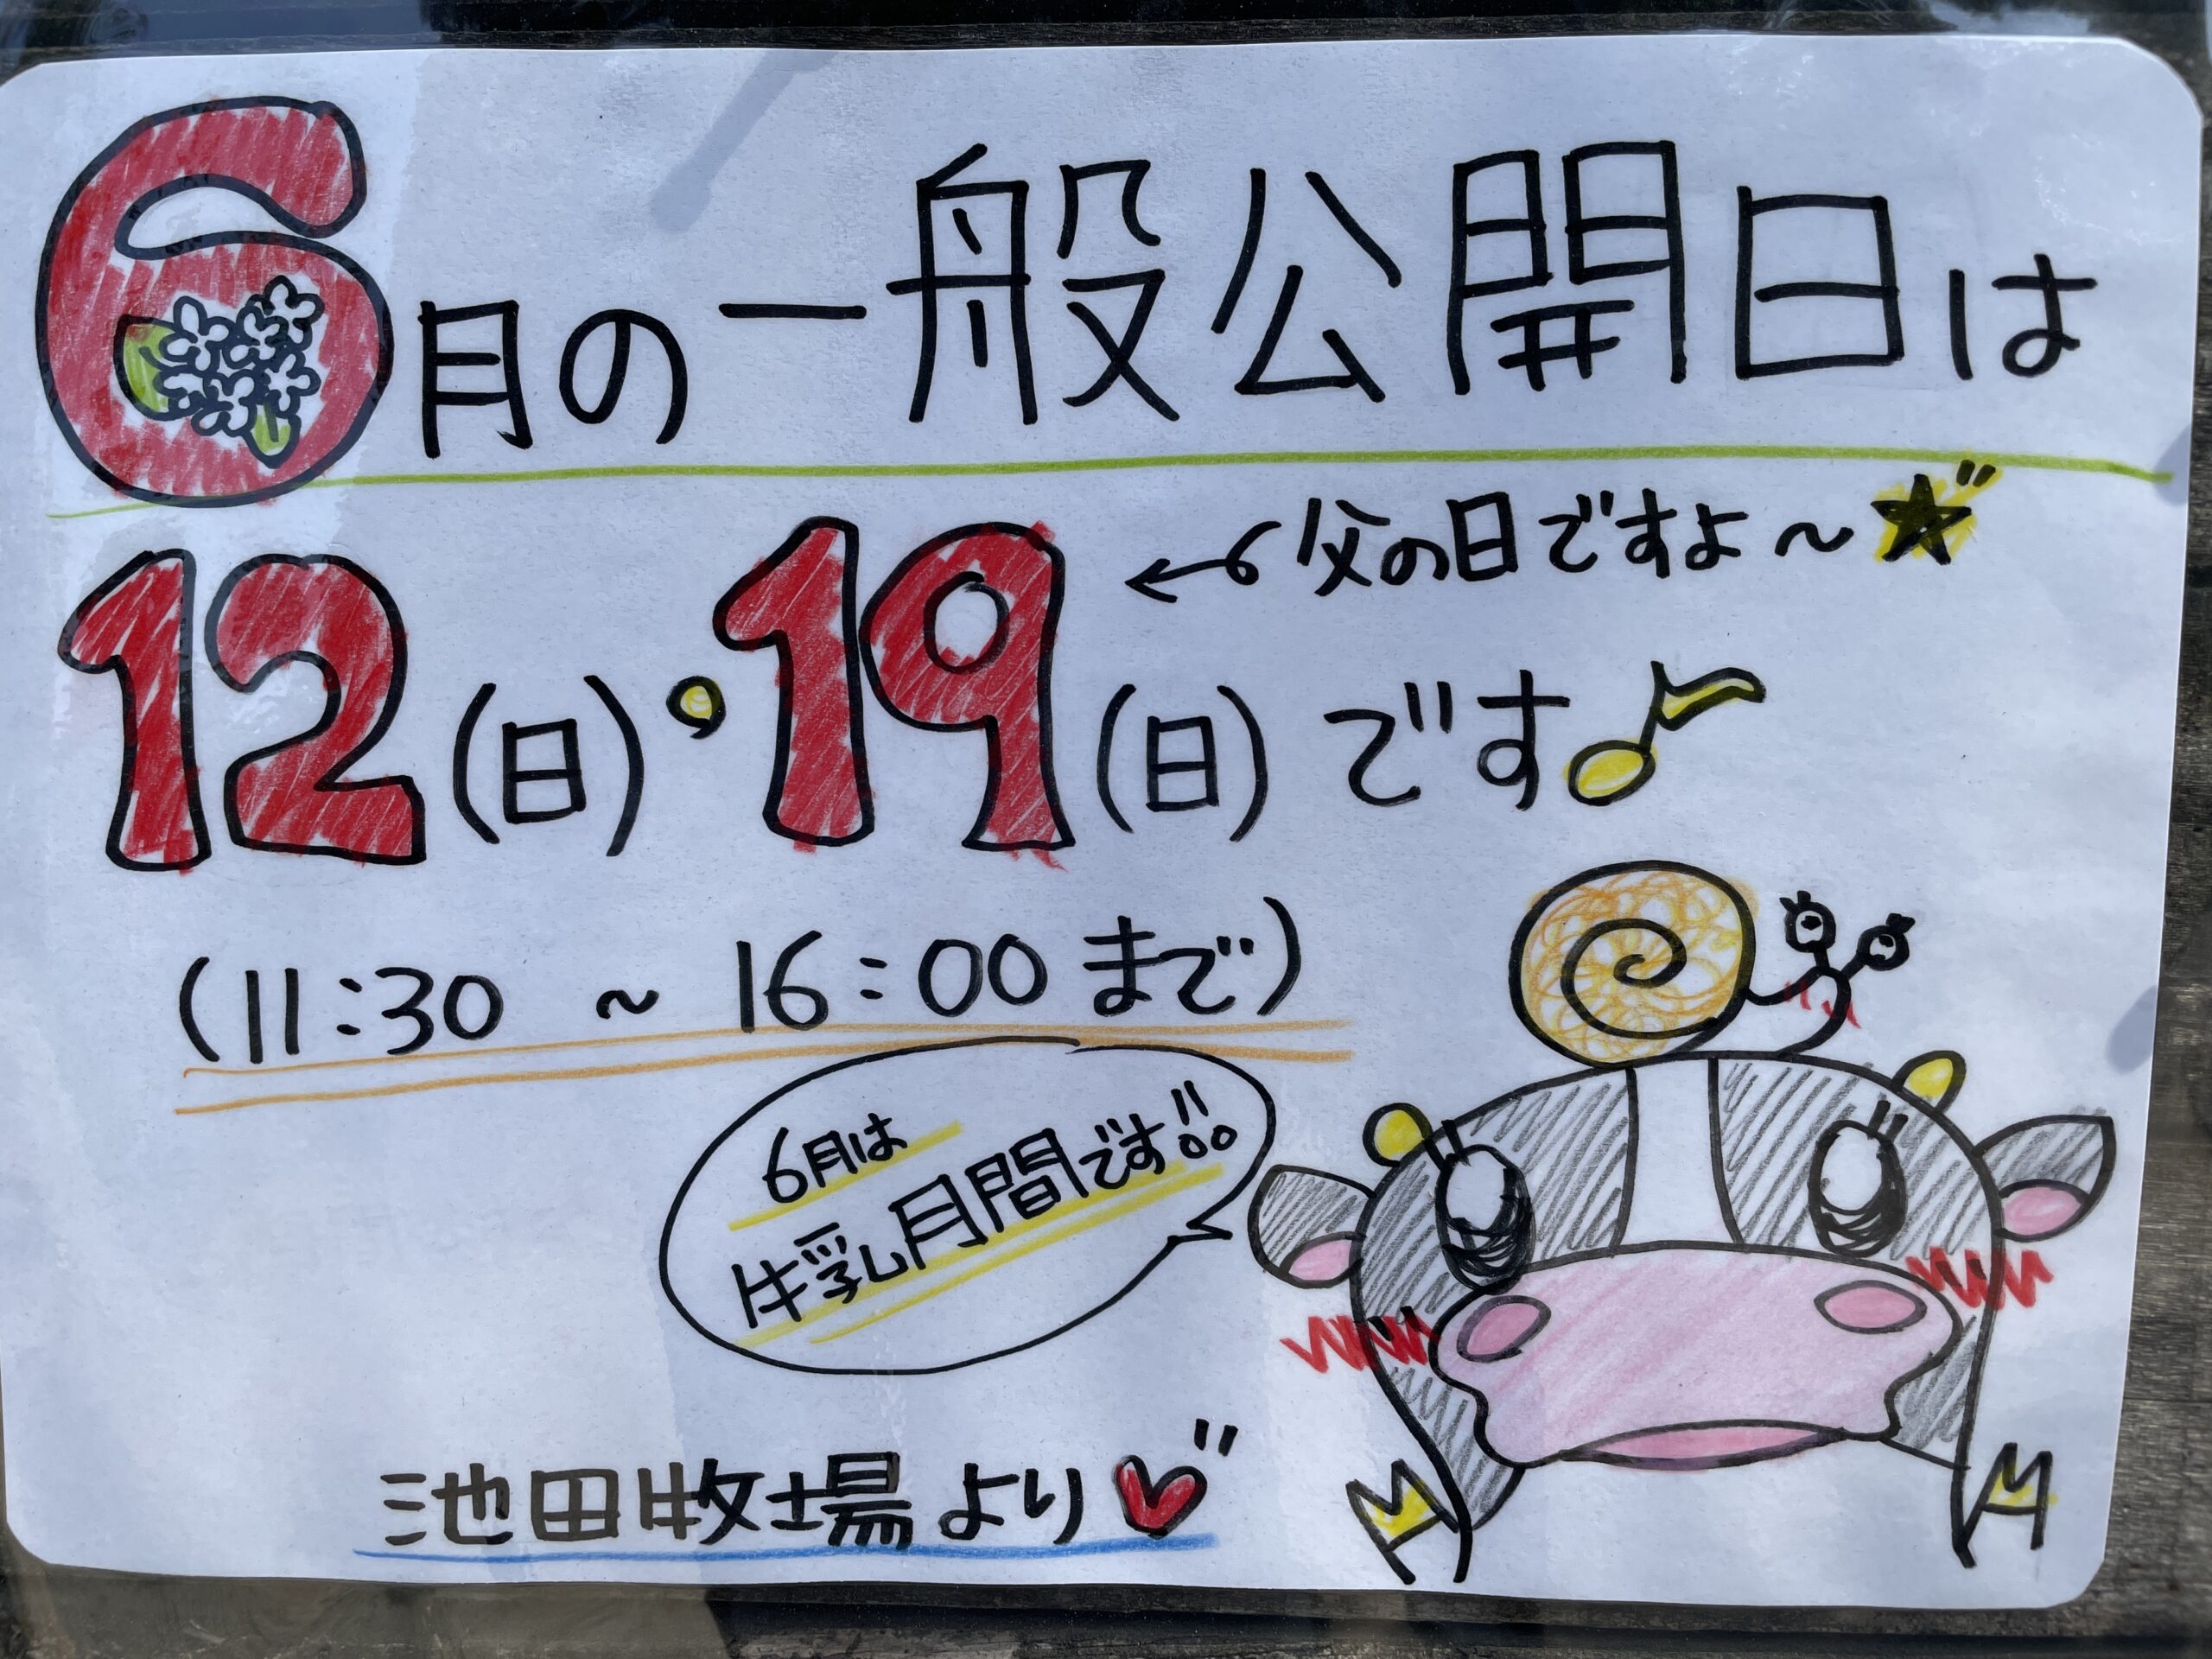 6月の一般公開日は
←父の日ですよ～★"
12(日),19(日)です♪
(11:30 ~ 16:00 まで)
6月は
牛乳月間です!!
池田牧場より♥"